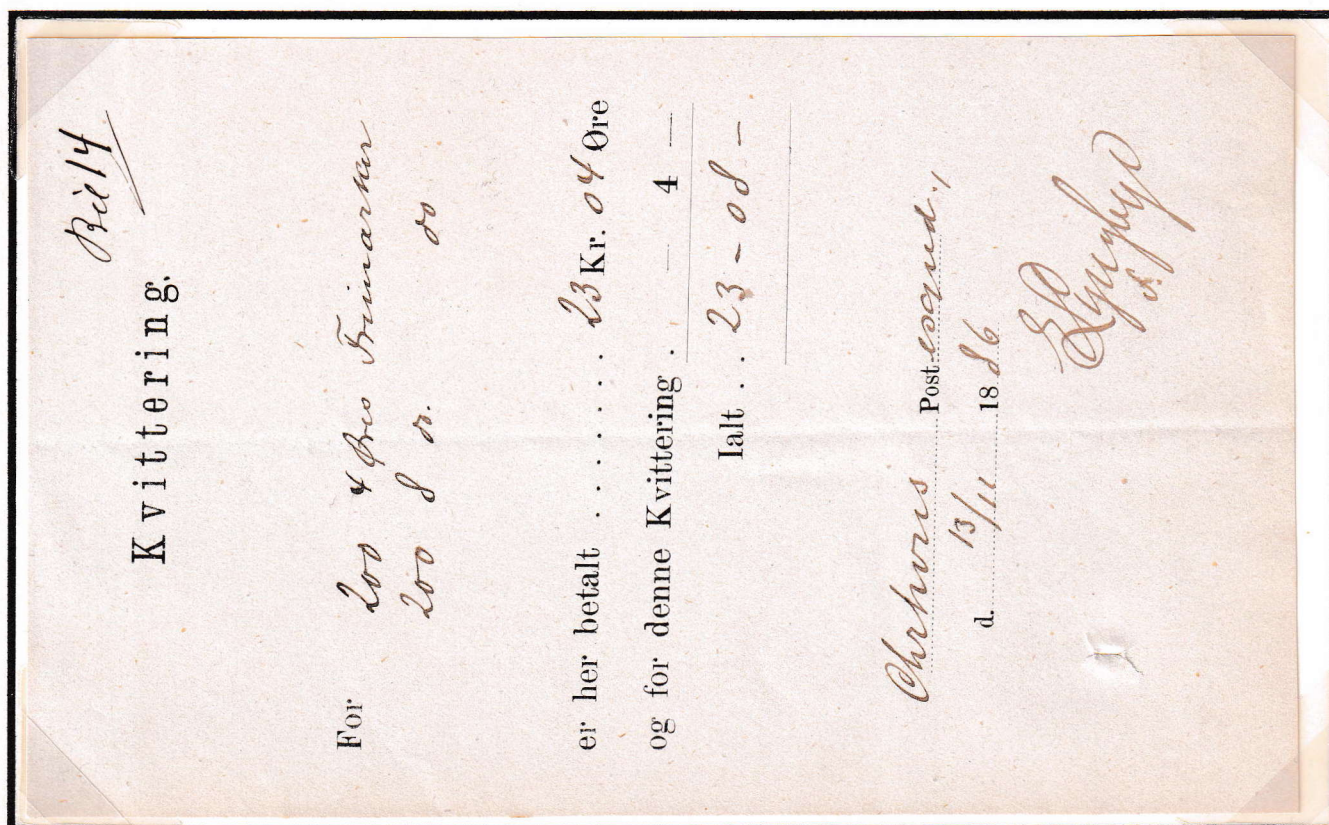 Bil 14
Kvittering.
For 200 4 Øres Frimærker
200 8 do. do
er her betalt . . . . . . . . 23 Kr. 04 Øre
og for denne Kvittering . — 4 —
Ialt . . 23 - 08 -
Post
d. 13/11 1886